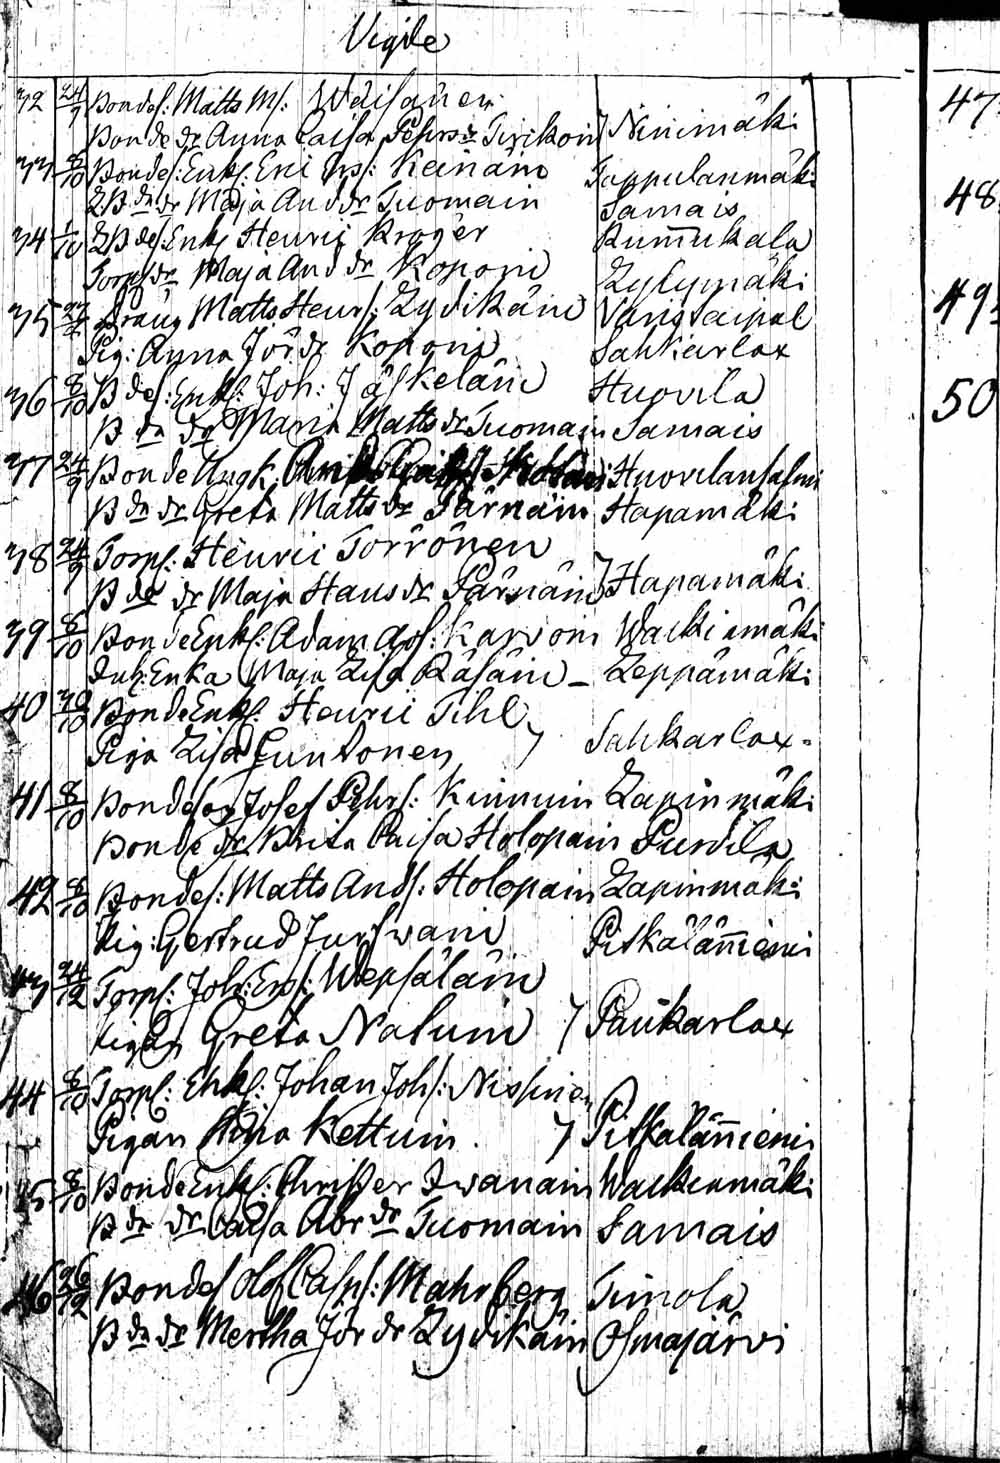 Vigde
32 24/9 Bondes: Matts Ms: Wäisänen
Bonde dr Anna Caisa Pehrsdr Tirikoin } Ninimäki
33 8/10 Bondes: Enkl: Eric Keinäin Tappulanmäki
Bdedr Maja And dr Tuomain Samais
34 1/10 Enkl Henric Kroger Rummukala
Torp dr Maja And dr Koponi
35 Dräng Matts Henr: Lydikäin
Pig: Anna Jör dr Koponi Sahkarlax
36 8/10 B des: Enkl: Joh: Jäskeläin Huovila
B de dr Maria Matts dr Tuomain Samais
37 24/9 Bonde Ungk. Huovilansalmi
B de dr Greta Matts dr Pärnäin Hapamäki
38 24/9 Torp: Henric Torrönen
B de dr Maja Hans dr Pärnäin } Hapamäki
39 8/10 Bonde Enkl: Adam Karvoin
Enka Maja Lisa Räsäin - Leppämäki
40 30/10 Bonde Enkl: Henric Tihl
Piga Lisa Juntonen } Sahkarlax
41 8/10 Bondeson Josef Pehrs: Kinnuin Lapinmäki
Bonde dr Brita Caisa Holopain Puroila
42 8/10 Bondes: Matts Ands: Holopain Lapinmäki
Pig: Gertrud Pitkälänniemi
43 24/12 Torp: Joh: Ers: Wepsäläin
Pigan Greta Naluin } Paukarlax
44 8/10 Torp: Enkl: Johan Joh: Niskinen
Pigan Kettuin } Pitkälänniemi
45 8/10 Bonde Enkl: Christer Iwanain
B de dr Caisa Abr dr Tuomain Samais
46 26/12 Bondes Olof Casp: Mahrberg Timola
B de dr Mertha Jör dr Lydikäin Osmajärvi
47
48
49
50